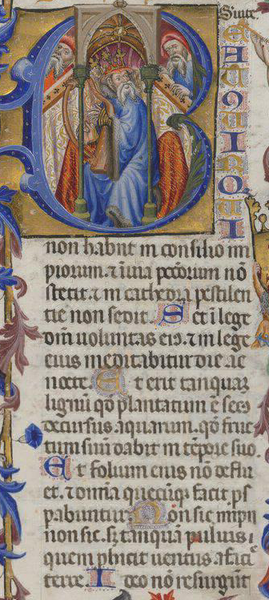 B
non habiit in consilio im
piorum ⁊ i uia peccorum nō
stetit ⁊ in cathedra pestilen
tie non sedit. Set i lege
dnī uoluntas eiꝰ ⁊ in lege
eius meditabitur die ac
nocte. Et erit tanquaz
lignū qd̄ plantatum ē secꝰ
decursus aquarum. qd̄ fruc
tum suū dabit in tēpore suo.
Et folium eius nō deflu
et. ⁊ omnia quecūqꝫ facit ꝓs
pabuntur. Non sic impii
non sic. sꝫ tanquā puluis
quem proicit uentus a facie
terre. Ideo nō resurgūt